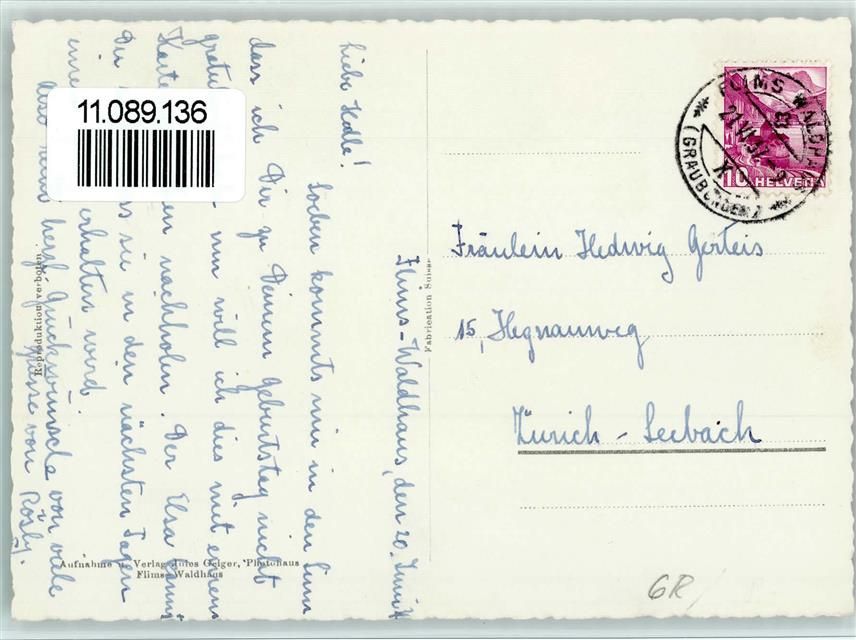 Flims-Waldhaus, den 20. Juni
Liebe Hedle!
Soeben kommts mir in den Sinn
dass ich Dir zu Deinem Geburtstag nicht
nun will ich dies mit einem
nachholen. Der Elsa
Dir sie in den nächsten Tagen
erhalten wird.
herzl. Glückwünsche von viele
Grüsse von Rösly.
11.089.136
Reproduktion verboten
Aufnahme u. Verlag Jules Geiger, Photohaus
Flims-Waldhaus
Fabrication Suisse
FLIMS WALDHAUS
(GRAUBÜNDEN)
10 HELVETIA
Fräulein Hedwig Gerteis
15, Hegnauweg
Zürich - Seebach
GR